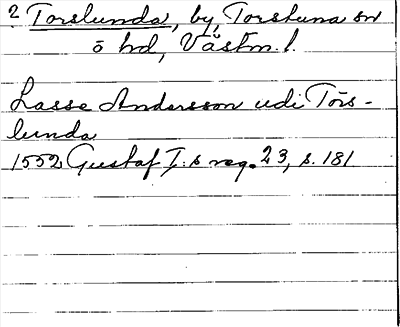 2 Torslunda, by, Torstuna sn
ö hd, Västm. l.
Lasse Andersson udi Tórs-
lunda
1552 Gustaf I:s reg. 23, s. 181